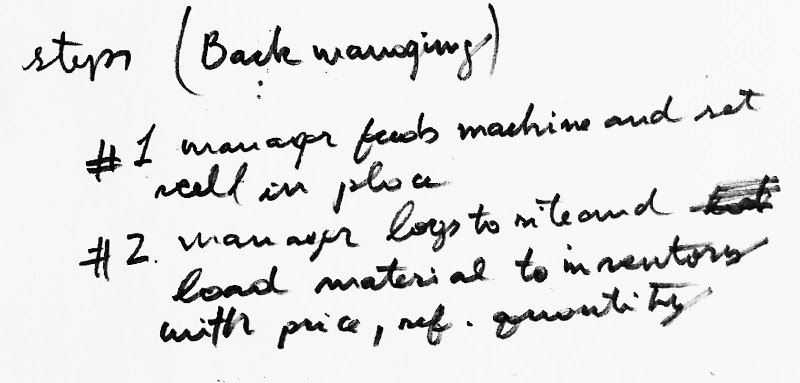 steps (Back managing)
:
#1 manager feeds machine and set
cell in place
#2. manager logs to site and
load material to inventory
with price, ref. quantity